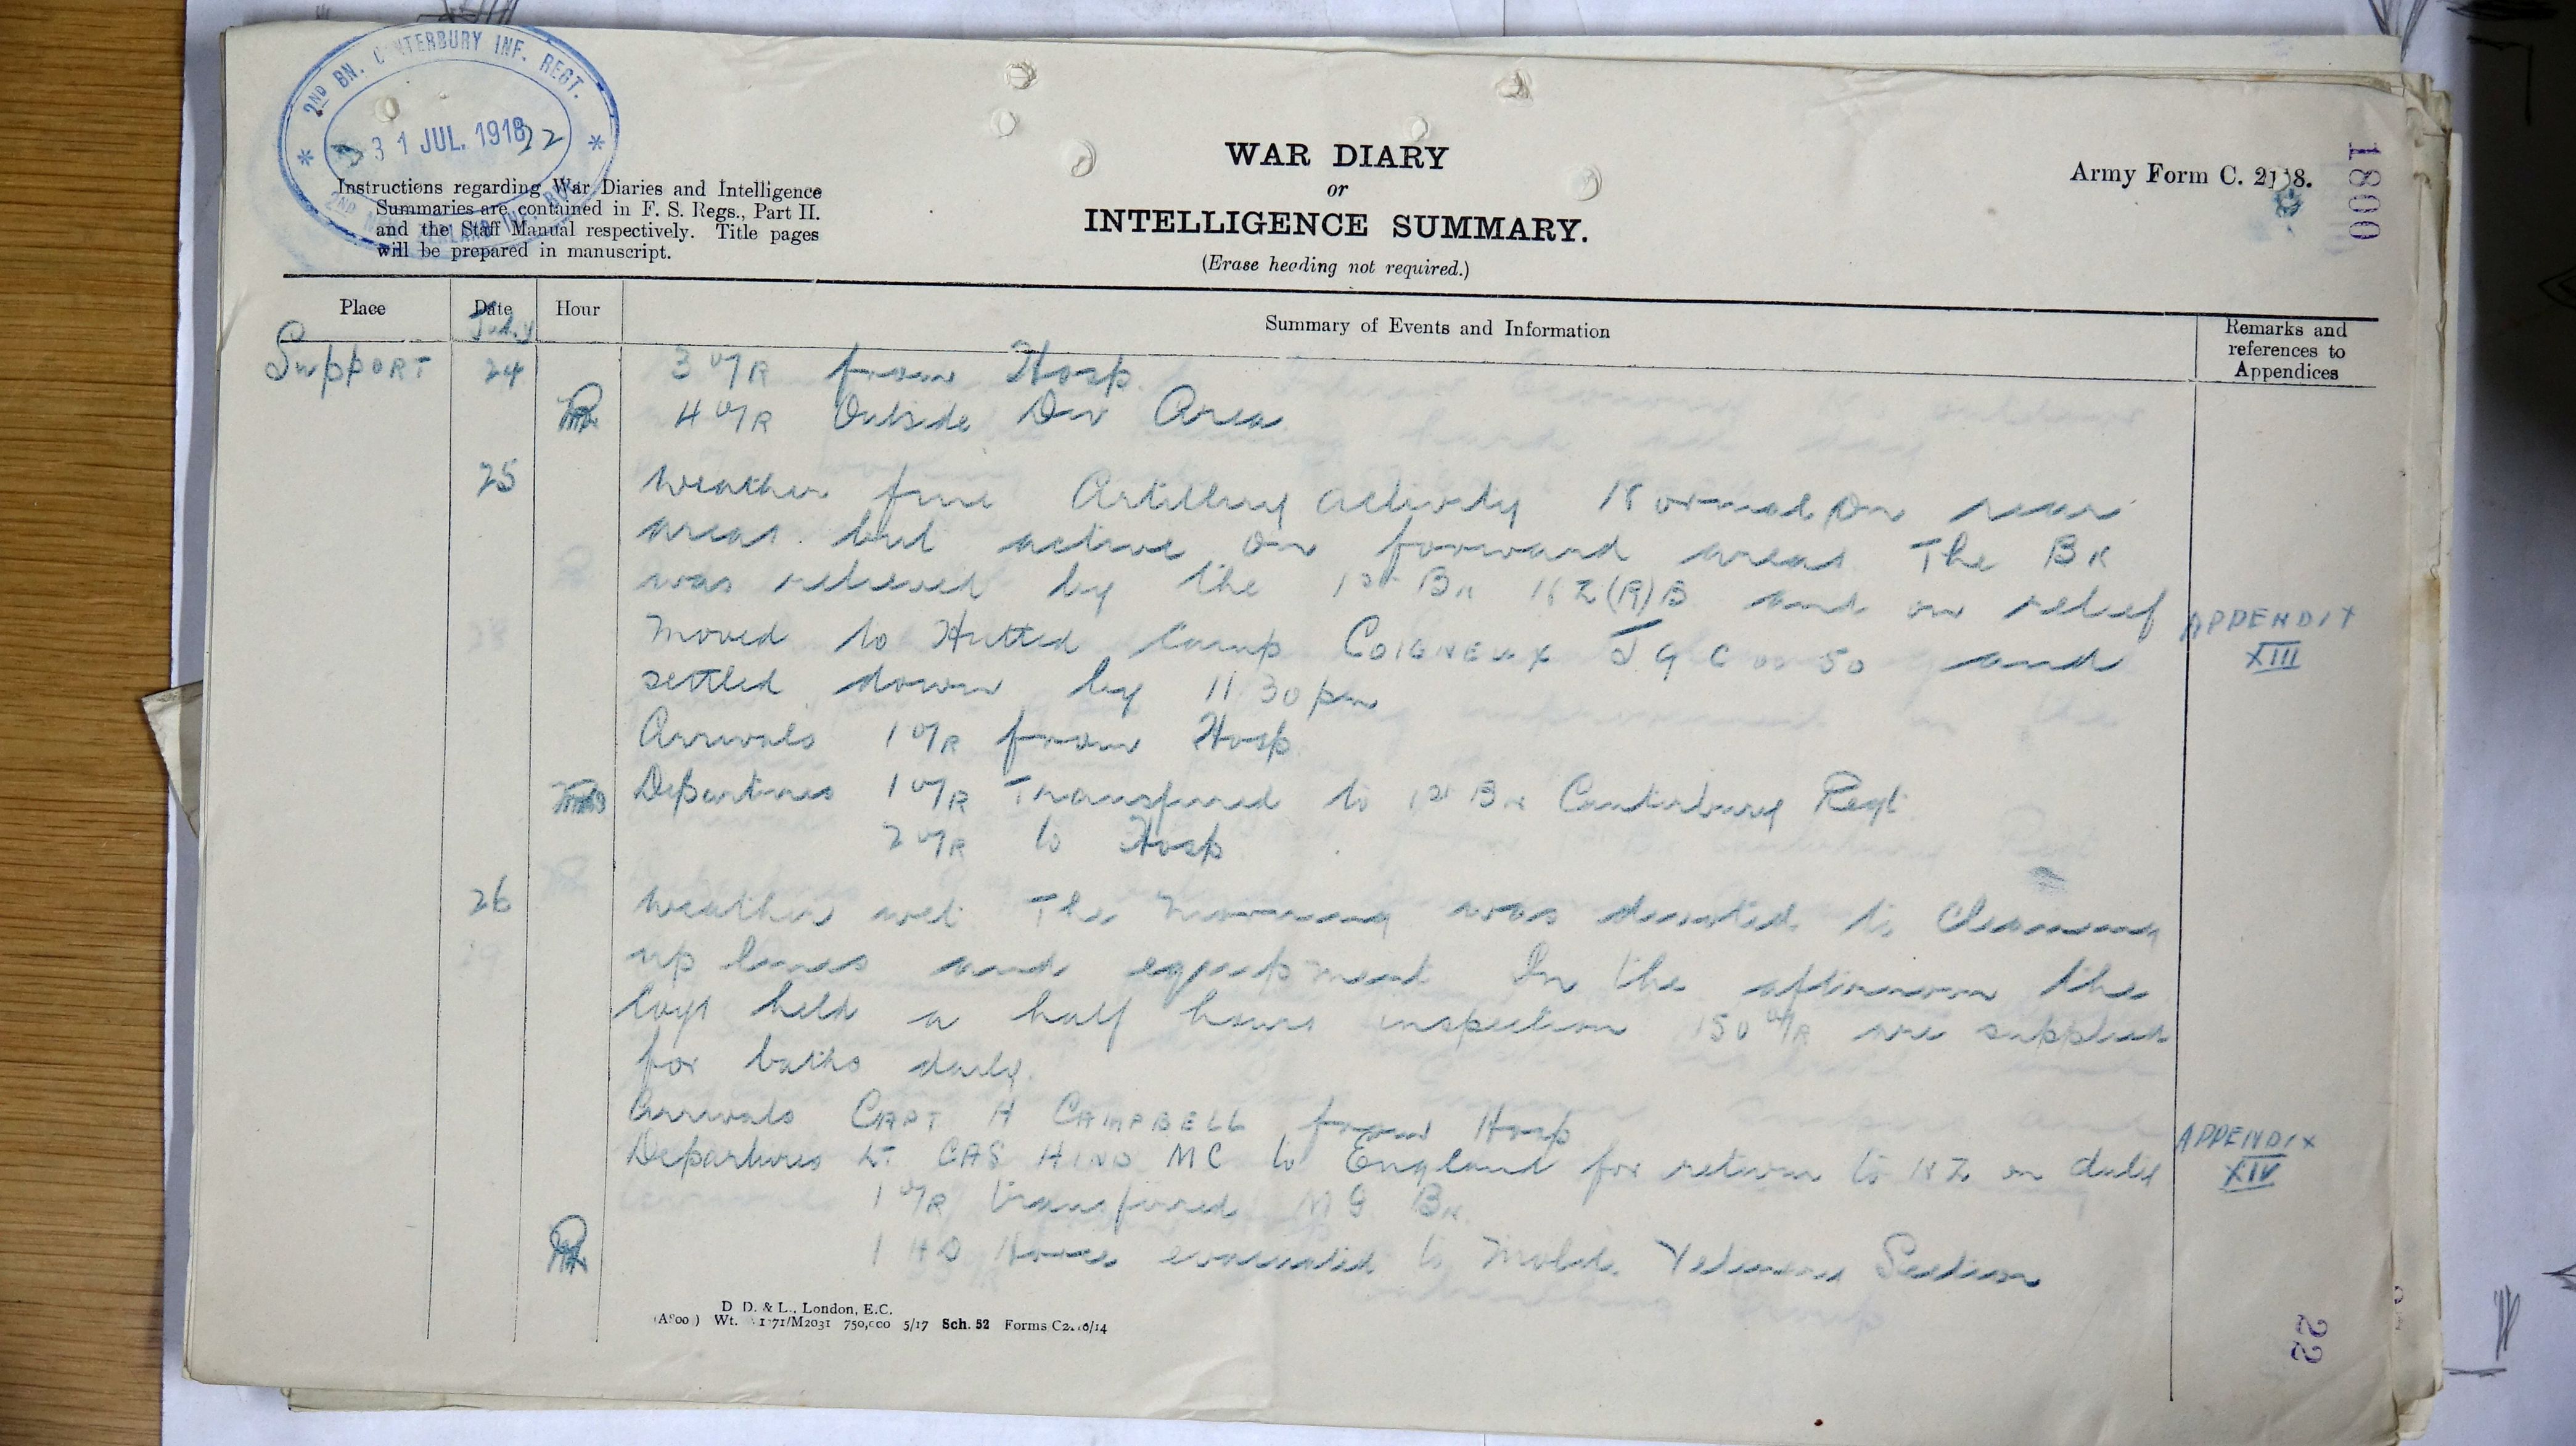 2ND BN. CANTERBURY INF. REGT.
31 JUL. 1918
Instructions regarding War Diaries and Intelligence
Summaries are contained in F. S. Regs., Part II.
and the Staff Manual respectively. Title pages
will be prepared in manuscript.
WAR DIARY
or
INTELLIGENCE SUMMARY.
(Erase heading not required.)
Army Form C. 2118.
1800
Place
Date
Hour
Summary of Events and Information
Remarks and
references to
Appendices
July
Support 24 3 O/R from Hosp.
4 O/R Outside Div Area
25 Weather fine Artillery activity Normal on rear
areas but active on forward areas The BN
was relieved by the 1st BN NZ(R)B and on relief APPENDIX
moved to Hutted Camp COIGNEUX J 9 C 00 50 and XIII
settled down by 11 30 pm
Arrivals 1 O/R from Hosp.
Departures 1 O/R Transfured to 1st BN Canterbury Regt
2 O/R to Hosp
26 Weather wet. The morning was devoted to cleaning
up lines and equipment In the afternoon the
Coys held a half hours inspection 150 O/R are supplied
for baths daily.
Arrivals CAPT H CAMPBELL from Hosp
Departures Lt CAS HIND MC to England for return to NZ on duty APPENDIX
XIV
1 O/R transfured M G BN
1 HD Horse evacuated to Mobile Veterinary Section
D. D. & L., London, E.C.
750,000 5/17 Sch. 52 Forms
22